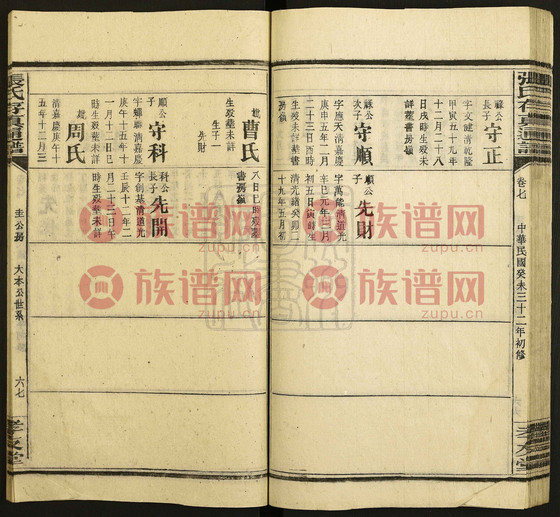 張氏存真通譜
卷七
中華民國癸未三十二年初修
孝友堂
祿公長子
守正
字文建清乾隆
甲寅五十九年
十二月二十八
日戌時生歿未
詳葬書房嶺
祿公次子
守順
字應天清嘉慶
庚申五年二月
二十三日酉時
生歿未詳葬書
房嶺
順公子
先財
字萬能清道光
辛巳元年三月
初五日寅時生
清光緒癸卯二
十九年五月初
八日巳時歿葬
書房嶺
妣
曹氏
生歿葬未詳
生子一
先財
順公子
守科
字輝聯清嘉慶
庚午十五年十
一月十二日巳
時生歿葬未詳
妣
周氏
清嘉慶庚午十
五年十二月三
科公長子
先開
字創基清道光
壬辰十二年二
月二十三日午
時生歿葬未詳
張氏存真通譜
圭公房
大本公世系
六七
孝友堂
族谱网
zupu.cn
族谱网
zupu.cn